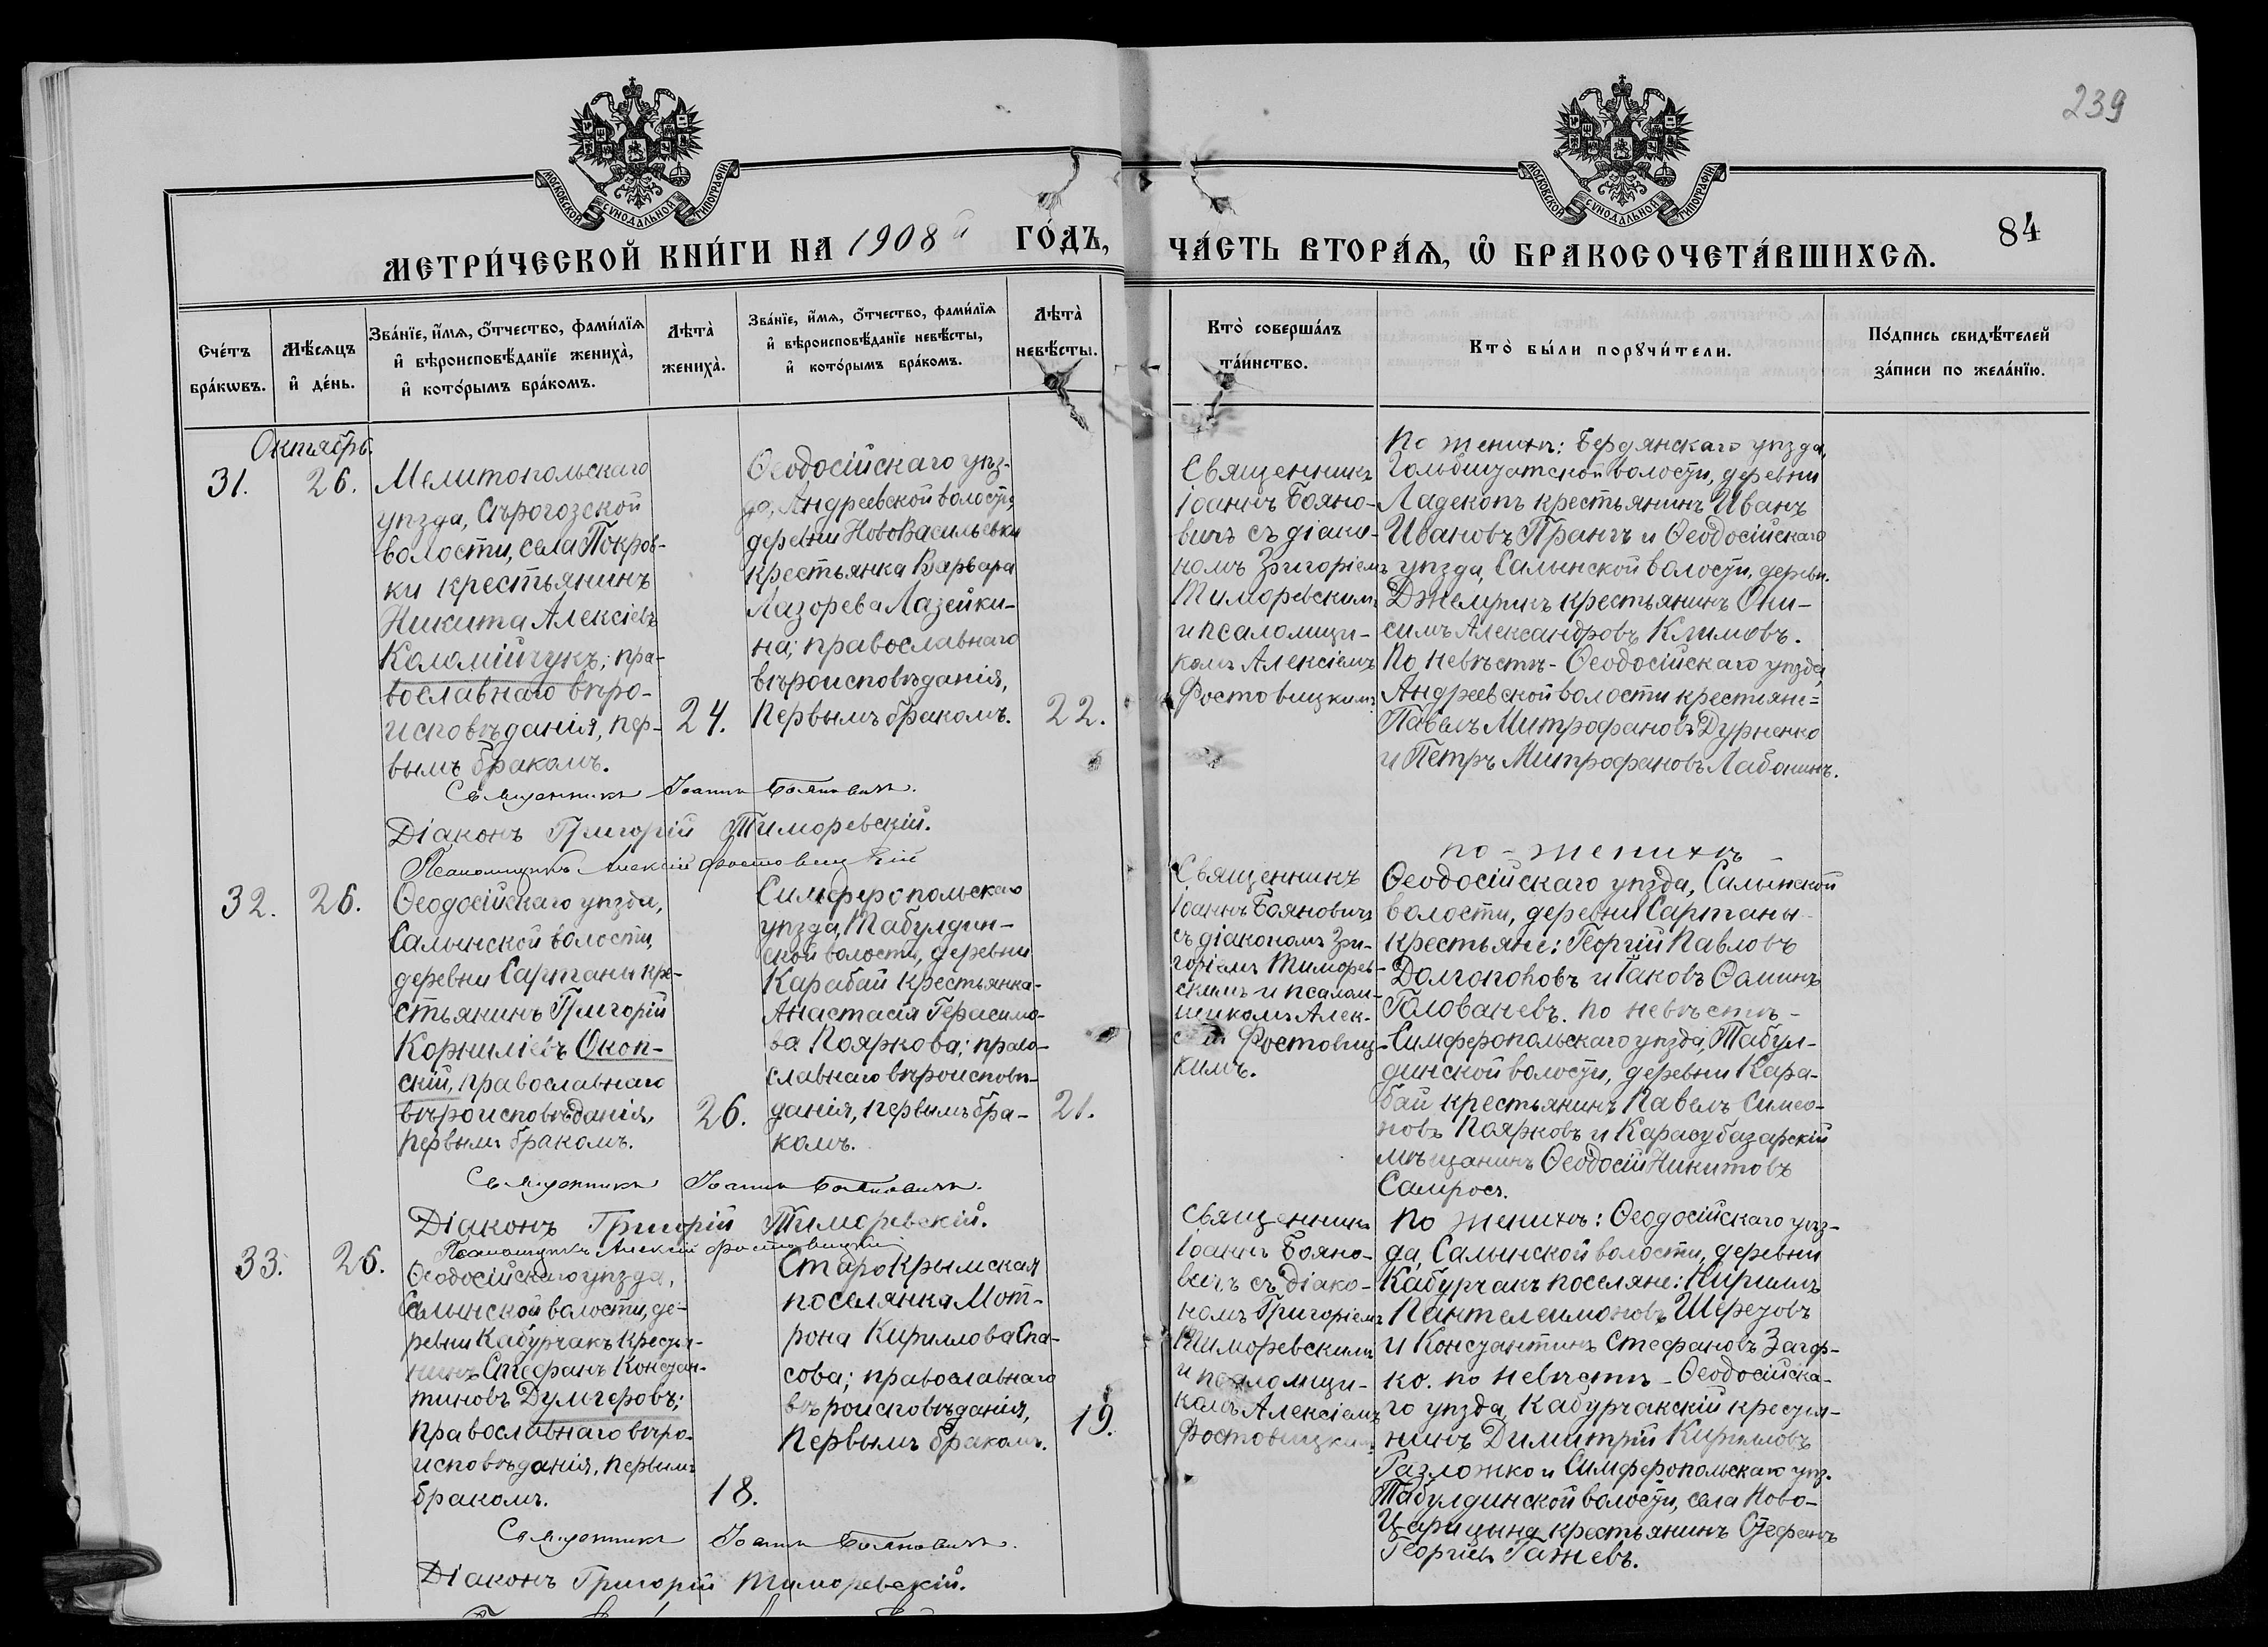 239
МОСКОВСКОЙ СѴНОДАЛЬНОЙ ТИПОГРАФІИ
МОСКОВСКОЙ СѴНОДАЛЬНОЙ ТИПОГРАФІИ
84
МЕТРИ́ЧЕСКОЙ КНИ́ГИ НА 1908й ГО́ДЪ,
ЧА́СТЬ ВТОРА́Ѧ, Ѿ БРАКОСОЧЕТА́ВШИХСѦ.
Сче́тъ
бра́кѡвъ.
Мѣ́сѧцъ
и҆ де́нь.
Зва́нїе, и҆́мѧ, ѻ҆́тчество, фами́лїѧ
и҆ вѣроисповѣ́данїе жениха̀,
и҆ кото́рымъ бра́комъ.
Лѣта̀
жениха̀.
Зва́нїе, и҆́мѧ, ѻ҆́тчество, фами́лїѧ
и҆ вѣроисповѣ́данїе невѣ́сты,
и҆ кото́рымъ бра́комъ.
Лѣта̀
невѣ́сты.
Кто̀ соверша́лъ
та́инство.
Кто̀ бы́ли порꙋчи́тели.
По́дпись свидѣ́телей
за́писи по жела́нїю.
Октябрь.
31.
26.
Мелитопольскаго
уѣзда, Сѣрогозской
волости, села Покров-
ки крестьянинъ
Никита Алексіевъ
Коломійчукъ; пра-
вославнаго вѣро-
исповѣданія, пер-
вымъ бракомъ.
24.
Ѳеодосійскаго уѣз-
да, Андреевской волости,
деревни НовоВасильевки
крестьянка Варвара
Лазорева Лазейки-
на; православнаго
вѣроисповѣданія,
первымъ бракомъ.
22.
Священникъ
Іоаннъ Бояно-
вичъ съ діако-
номъ Григоріемъ
Тиморевскимъ
и псаломщи-
комъ Алексіемъ
Фостовицкимъ
По женихѣ: Бердянскаго уѣзда,
Гольбштатской волости, деревни
Ладекопъ крестьянинъ Иванъ
Ивановъ Прангъ и Ѳеодосійскаго
уѣзда, Салынской волости, деревн.
Джелучикъ крестьянинъ Они-
симъ Александровъ Климовъ.
По невѣстѣ- Ѳеодосійскаго уѣзда,
Андреевской волости крестьяне=
Павелъ Митрофановъ Дурненко
и Петръ Митрофановъ Лабонинъ.
Священникъ Іоаннъ Бояновичъ.
Діаконъ Григорій Тиморевскій.
Псаломщикъ Алексій Фостовицкій
32.
26.
Ѳеодосійскаго уѣзда,
Салынской волости,
деревни Сартаны кре-
стьянинъ Григорій
Корниліевъ Окоп-
скій, православнаго
вѣроисповѣданія,
первымъ бракомъ.
26.
Симферопольскаго
уѣзда, Табулдин-
ской волости, деревни
Карабай крестьянка-
Анастасія Герасимо-
ва Пояркова; право-
славнаго вѣроисповѣ-
данія, первымъ бра-
комъ.
21.
Священникъ
Іоаннъ Бояновичъ
съ діакономъ Гри-
горіемъ Тиморев-
скимъ и псалом-
щикомъ Алек-
Фостовиц-
кимъ.
по-женихѣ
Ѳеодосійскаго уѣзда, Салынской
волости, деревни Сартаны
крестьяне: Георгій Павловъ
Долгополовъ и Іаковъ Ѳоминъ
Голованевъ. по невѣстѣ-
Симферопольскаго уѣзда, Табул-
динской волости, деревни Кара-
бай крестьянинъ Павелъ Симео-
новъ Поярковъ и Карасубазарскій
мѣщанинъ Ѳеодосій Никитовъ
Священникъ Іоаннъ Бояновичъ.
Діаконъ Григорій Тиморевскій.
Псаломщикъ Алексій Фостовицкій
33.
26.
Ѳеодосійскаго уѣзда,
Салынской волости, де-
ревни Кабурчакъ кресть-
нинъ Стефанъ Констан-
тиновъ Дулгеровъ;
православнаго вѣро-
исповѣданія, первымъ
бракомъ.
18.
СтароКрымская
поселянка Мот-
рона Кириллова Спа-
сова; православнаго
вѣроисповѣданія,
первымъ бракомъ.
19.
Священникъ
Іоаннъ Бояно-
вичъ съ діако-
номъ Григоріемъ
Тиморевскимъ
и псаломщи-
комъ Алексіемъ
Фостовицким
По женихѣ: Ѳеодосійскаго уѣз-
да, Салынской волости, деревни
Кабурчакъ поселяне: Кириллъ
Пантелеимоновъ Шерезовъ
и Константинъ Стефановъ Загор-
ко. по невѣстѣ - Ѳеодосійска-
го уѣзда, Кабурчакскій крестья-
нинъ Димитрій Кирилловъ
Разложко и Симферопольскаго уѣз.
Табулдинской волости, села Ново-
Царицына крестьянинъ Стефанъ
Георгіевъ Гажевъ.
Священникъ Іоаннъ Бояновичъ.
Діаконъ Григорій Тиморевскій.